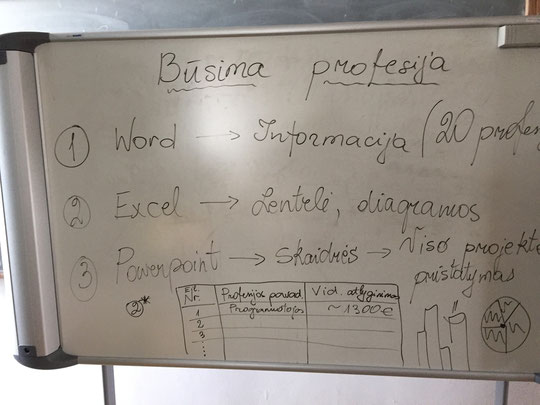 Būsima profesija
① Word → Informacija (20 profes
② Excel → Lentelė, diagramos
③ Powerpoint → Skaidrės → Viso projekto pristatymas
②* Eil. Nr. Profesijos pavad. Vid. atlyginimas
1 Programuotojas ~1300€
2
3